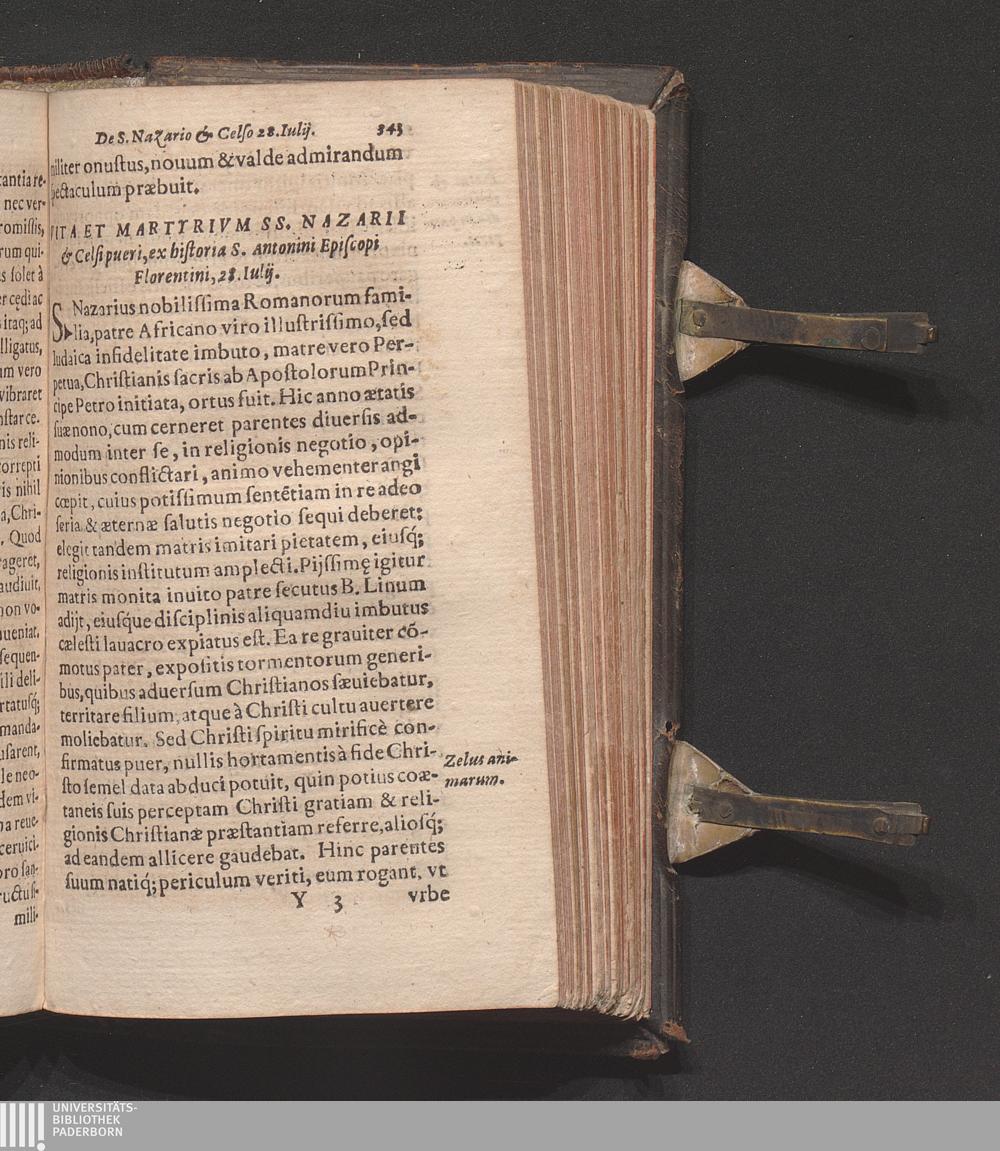 tantia re-
nec ver-
romissis,
rum qui-
s solet à
er cędi ac
itaq; ad
lligatus,
um vero
vibraret
nstar ce.
nis reli-
correpti
is nihil
a, Chri-
. Quod
rageret,
audiuit,
non vo-
ueniat,
sequen-
ili deli-
rtatusq́;
manda-
usarent,
le neo-
dem vi-
na reue-
ceruici-
pro san-
ructuſ-
mili-
De S. Nazario & Celſo 28. Iulij. 343
niliter onuſtus, nouum & valde admirandum
ſpectaculum præbuit.
VITA ET MARTYRIVM SS. NAZARII
& Celſi pueri, ex hiſtoria S. Antonini Epiſcopi
Florentini, 28. Iulij.
S. Nazarius nobiliſsima Romanorum fami-
lia, patre Africano viro illuſtriſsimo, ſed
Iudaica infidelitate imbuto, matre vero Per-
petua, Chriſtianis ſacris ab Apoſtolorum Prin-
cipe Petro initiata, ortus fuit. Hic anno ætatis
ſuæ nono, cum cerneret parentes diuerſis ad-
modum inter ſe, in religionis negotio, opi-
nionibus conflictari, animo vehementer angi
cœpit, cuius potiſſimum ſentētiam in re adeo
ſeria & æternæ ſalutis negotio ſequi deberet:
elegit tandem matris imitari pietatem, eiuſq́;
religionis inſtitutum amplecti. Pijſſimę igitur
matris monita inuito patre ſecutus B. Linum
adijt, eiuſque diſciplinis aliquamdiu imbutus
cæleſti lauacro expiatus eſt. Ea re grauiter cō-
motus pater, expoſitis tormentorum generi-
bus, quibus aduerſum Chriſtianos ſæuiebatur,
territare filium, atque à Chriſti cultu auertere
moliebatur. Sed Chriſti ſpiritu mirificè con-
firmatus puer, nullis hortamentis à fide Chri-
ſto ſemel data abduci potuit, quin potius coæ-
taneis ſuis perceptam Chriſti gratiam & reli-
gionis Chriſtianæ præſtantiam referre, alioſq́;
ad eandem allicere gaudebat. Hinc parentes
ſuum natiq́; periculum veriti, eum rogant, vt
Y 3 vrbe
Zelus ani-
marum.
UNIVERSITÄTS-
BIBLIOTHEK
PADERBORN